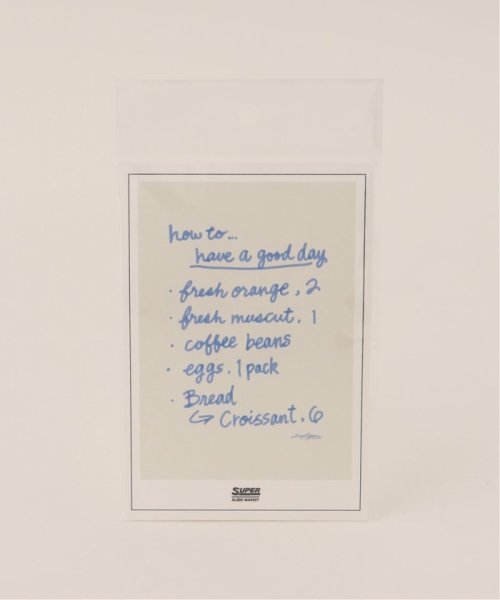 how to...
have a good day
· fresh orange, 2
· fresh muscut. 1
· coffee beans
· eggs. 1 pack
· Bread
↳ Croissant. 6
SUPER